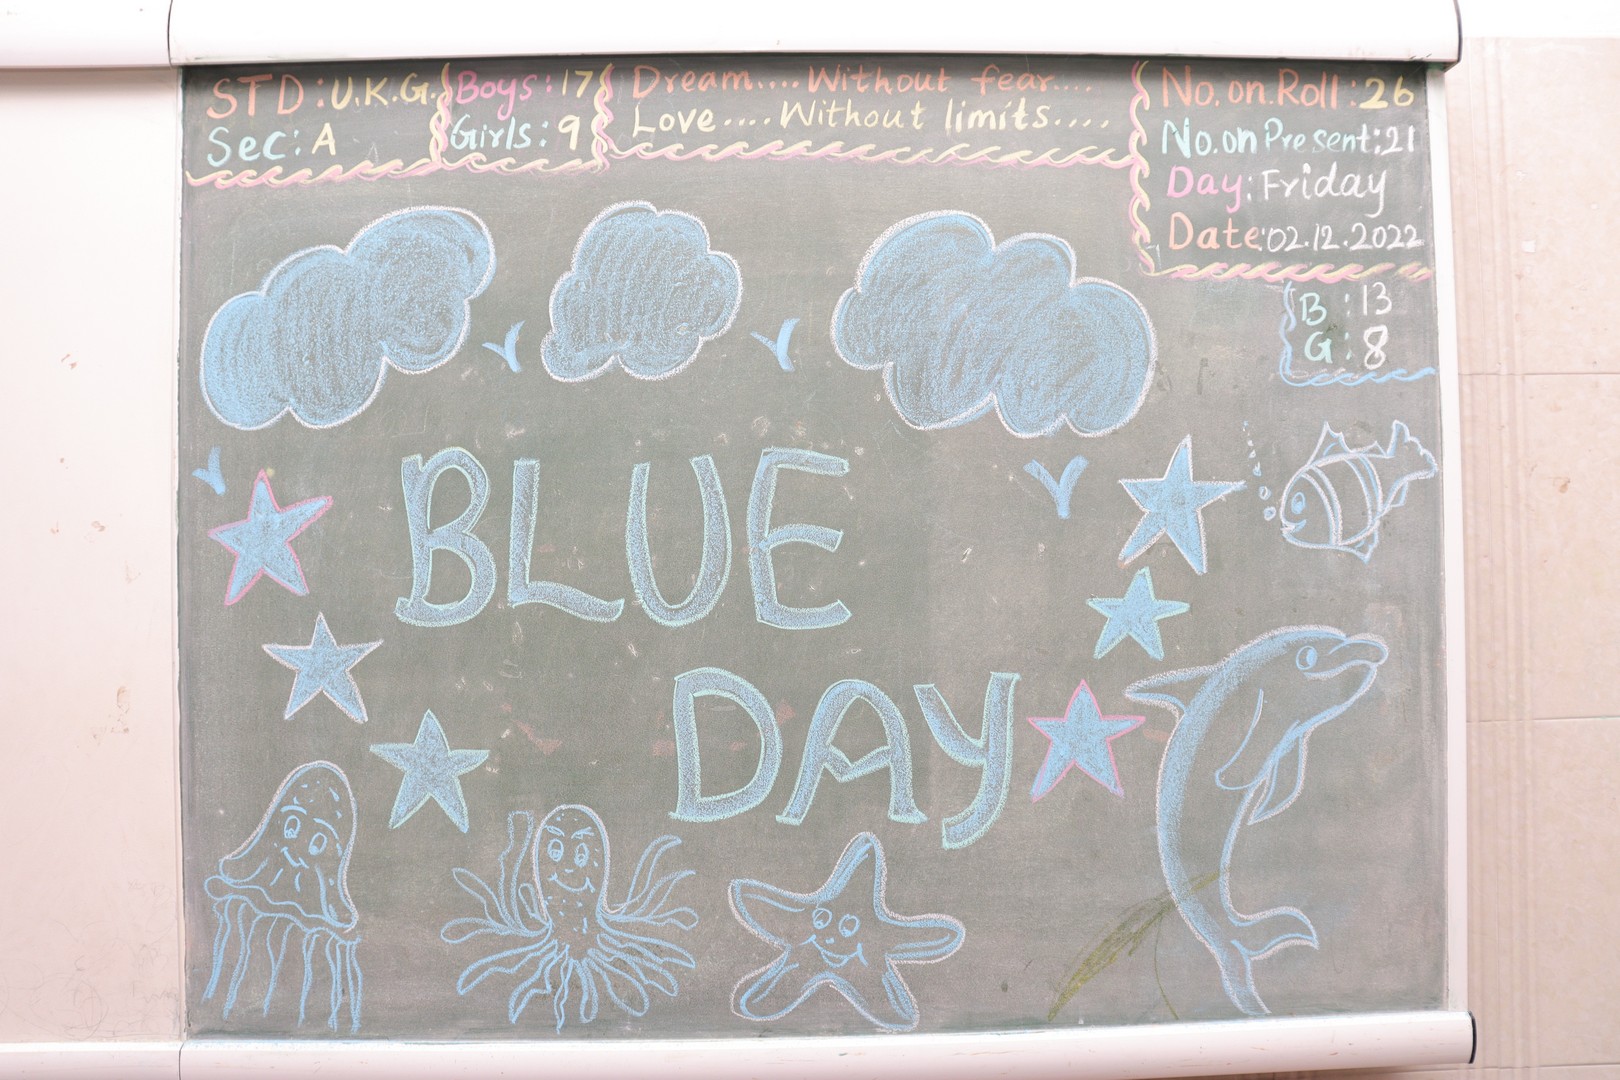 STD:U.K.G.
Sec:A
Boys:17
Girls:9
Dream....Without fear....
Love....Without limits....
No.on.Roll:26
No.on Present:21
Day:Friday
Date:02.12.2022
B:13
G:8
BLUE
DAY